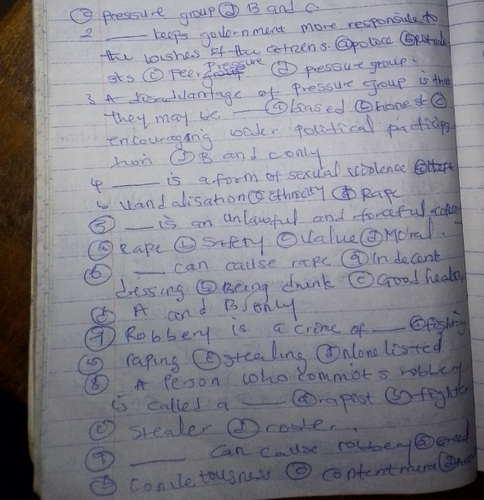 ⓒ pressure group ⓓ B and C
2 ____ keeps government more responsible to
the wishes of the citizens. ⓐ police ⓑ
sts ⓒ Peer pressure ⓓ pressure group.
3 A disadvantage of pressure group is that
they may be ____ ⓐ biased ⓑ honest ⓒ
encouraging wider political particip
tion ⓓ B and C only
4 ____ is a form of sexual violence ⓐ
ⓑ vandalisation ⓒ ethnicity ⓓ Rape
⑤ ____ is an unlawful and forceful
ⓐ Rape ⓑ Safety ⓒ Value ⓓ Moral.
⑥ ____ can cause rape ⓐ Indecent
dressing ⓑ Being drunk ⓒ Good health
ⓓ A and B only
⑦ Robbery is a crime of ____ ⓐ fighting
ⓑ raping ⓒ stealing ⓓ None listed
⑧ A Person who commits robbery
is called a ____ ⓐ rapist ⓑ fighter
ⓒ stealer ⓓ
⑨ ____ can cause robbery ⓐ Greed
ⓑ ⓒ ⓓ